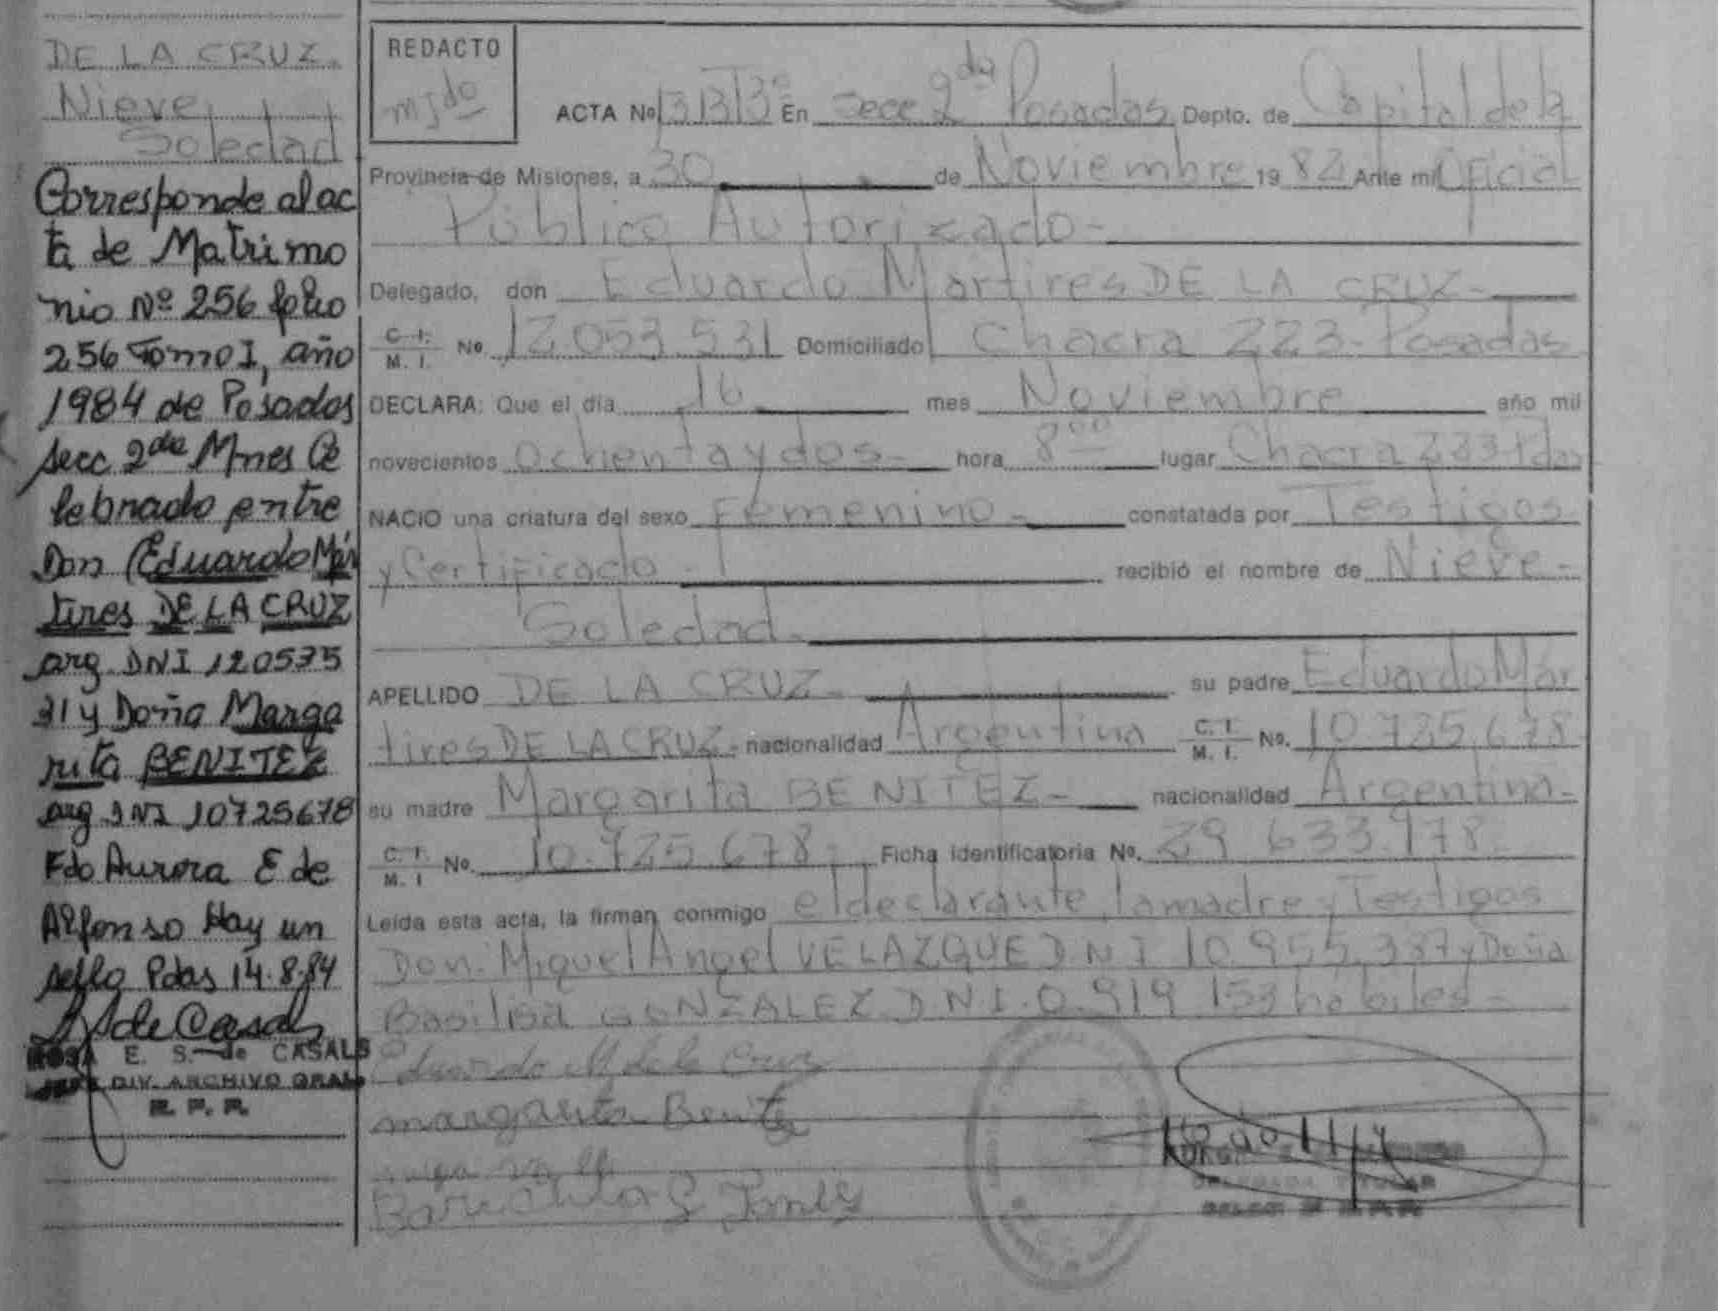 DE LA CRUZ.
Nieve
Soledad
Corresponde al ac
ta de Matrimo
nio Nº 256 folio
256 Tomo I, año
1984 de Posadas
secc 2da Mnes Ce
lebrado entre
Don Eduardo Már
tires DE LA CRUZ
arg. DNI 120535
31 y Doña Marga
rita BENITEZ
arg DNI 10725678
Fdo Aurora E de
Alfonso Hay un
sello Pdas 14.8.84
ROSA E. S. de CASALS
JEFE DIV. ARCHIVO GRAL
R. P. P.
REDACTO
ACTA Nº 3133º En Secc 2da Posadas Depto. de Capital de la
Provincia de Misiones, a 30 de Noviembre 19 82 Ante mi Oficial
Público Autorizado-
Delegado, don Eduardo Mártires DE LA CRUZ-
C. I. M. I. Nº 12.053.531 Domiciliado Chacra 223-Posadas
DECLARA: Que el día 16 mes Noviembre año mil
novecientos Ochenta y dos- hora 8°° lugar Chacra 223-Pdas
NACIO una criatura del sexo Femenino- constatada por Testigos
y Certificado- recibió el nombre de Nieve-
Soledad-
APELLIDO DE LA CRUZ- su padre Eduardo Már
tires DE LA CRUZ- nacionalidad Argentina C. I. M. I. No. 10.725.678
su madre Margarita BENITEZ- nacionalidad Argentina-
C. I. M. I No. 10.725.678- Ficha identificatoria No. 29.633.978
Leída esta acta, la firman conmigo el declarante, la madre y Testigos
Don. Miguel Angel VELAZQUE D.N.I 10.955.387 y Doña
Basilisa GONZALEZ D.N.I.0.919.153 habiles-
Eduardo M de la Cruz
margarita Benitez